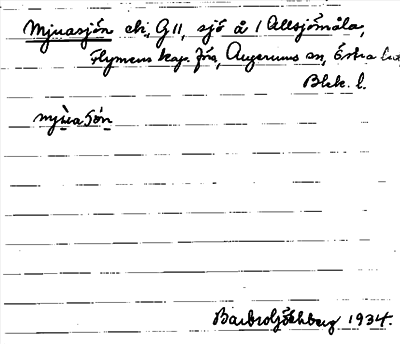 Mjuasjön ek, G11, sjö å 1 Allsjömåla,
Flymens kap. förs, Augerums sn, Östra
Blek. l.
mjùa,Són
Barbro Söchberg 1934.